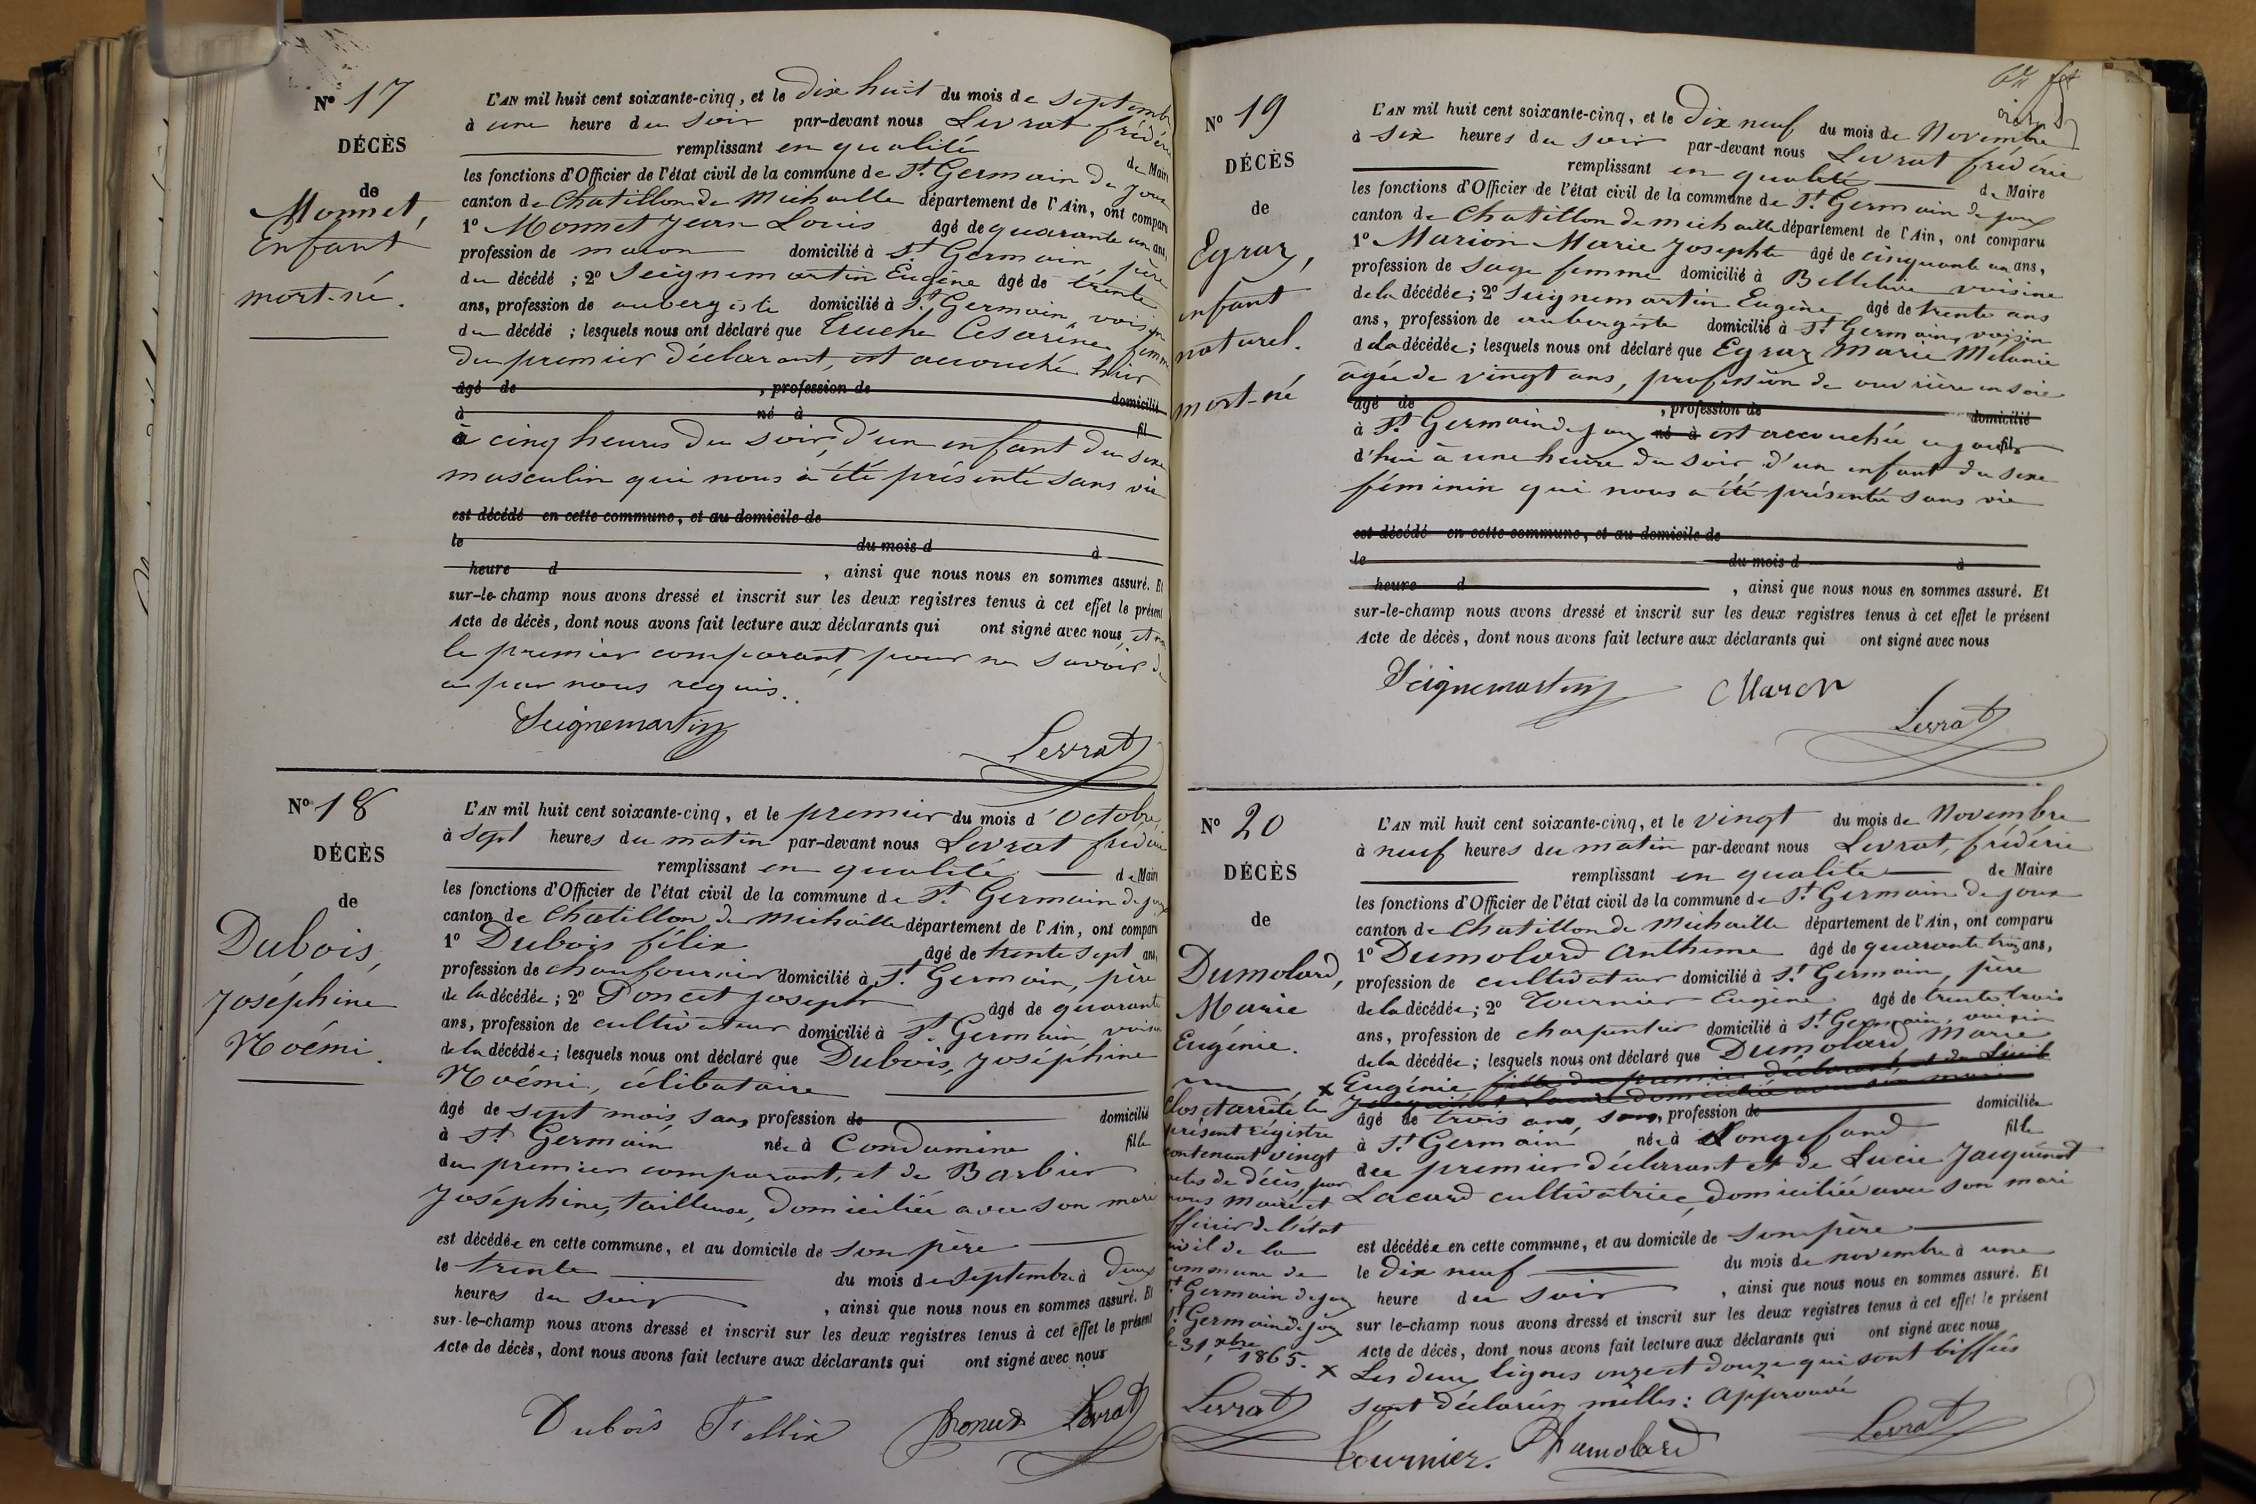 N° 17
DÉCÈS
de
Monnet,
Enfant
mort-né.
L'AN mil huit cent soixante-cinq, et le dix huit du mois de septembre
à une heure du soir par-devant nous Levrat frédéric
remplissant en qualité de Maire
les fonctions d'Officier de l'état civil de la commune de St Germain de joux
canton de Chatillon de Michaille département de l'Ain, ont comparu
1° Monnet Jean Louis âgé de quarante un ans,
profession de maçon domicilié à St Germain, père
du décédé ; 2° Seignemartin Eugène âgé de trente
ans, profession de aubergiste domicilié à St Germain, voisin
du décédé ; lesquels nous ont déclaré que Truche Césarine, femme
du premier déclarant, est accouché hier
âgé de , profession de domicilié
à né à fil
à cinq heures du soir, d'un enfant du sexe
masculin qui nous a été présenté sans vie
est décédé en cette commune, et au domicile de
le du mois d à
heure d , ainsi que nous nous en sommes assuré. Et
sur-le-champ nous avons dressé et inscrit sur les deux registres tenus à cet effet le présent
Acte de décès, dont nous avons fait lecture aux déclarants qui ont signé avec nous, et non
le premier comparant, pour ne savoir de
ce par nous requis.
Seignemartin
Levrat
N° 18
DÉCÈS
de
Dubois,
Joséphine
Noémi.
L'AN mil huit cent soixante-cinq, et le premier du mois d'Octobre,
à sept heures du matin par-devant nous Levrat frédéric
remplissant en qualité de Maire
les fonctions d'Officier de l'état civil de la commune de St Germain de joux
canton de Chatillon de Michaille département de l'Ain, ont comparu
1° Dubois félix âgé de trente sept ans,
profession de chaufournier domicilié à St Germain, père
de la décédée ; 2° Poncet Joseph âgé de quarante
ans, profession de cultivateur domicilié à St Germain, voisin
de la décédée ; lesquels nous ont déclaré que Dubois, Joséphine
Noémi, célibataire
âgé de sept mois, sans profession de domicilié
à St Germain née à Condamine fille
du premier comparant, et de Barbier
Joséphine, tailleuse, domiciliée avec son mari
est décédée en cette commune, et au domicile de son père
le trente du mois de septembre à deux
heures du soir , ainsi que nous nous en sommes assuré. Et
sur-le-champ nous avons dressé et inscrit sur les deux registres tenus à cet effet le présent
Acte de décès, dont nous avons fait lecture aux déclarants qui ont signé avec nous
Dubois Fellix Levrat
N° 19
DÉCÈS
de
Egraz,
enfant
naturel.
mort-né
L'AN mil huit cent soixante-cinq, et le Dix neuf du mois de Novembre
à six heures du soir par-devant nous Levrat frédéric
remplissant en qualité de Maire
les fonctions d'Officier de l'état civil de la commune de St Germain de joux
canton de Chatillon de michaille département de l'Ain, ont comparu
1° Marion Marie Josephte âgé de cinquante un ans,
profession de Sage femme domicilié à Belleluire voisine
de la décédée ; 2° Seignemartin Eugène âgé de trente ans
ans, profession de aubergiste domicilié à St Germain, voisin
de la décédée ; lesquels nous ont déclaré que Egraz Marie Mélanie
âgée de vingt ans, profession de ouvrière en soie
âgé de , profession de domicilié
à St Germain de joux né à est accouchée aujour fils
d'hui à une heure du soir d'un enfant du sexe
féminin qui nous a été présentée sans vie
est décédé en cette commune, et au domicile de
le du mois d à
heure d , ainsi que nous nous en sommes assuré. Et
sur-le-champ nous avons dressé et inscrit sur les deux registres tenus à cet effet le présent
Acte de décès, dont nous avons fait lecture aux déclarants qui ont signé avec nous
Seignemartin
Levrat
N° 20
DÉCÈS
de
Dumolard,
Marie
Eugénie.
Clos et arrêté le
présent régistre
contenant vingt
actes de décès, par
nous Maire et
officier de l'état
civil de la
commune de
St Germain de joux
St Germain de joux
le 31 xbre
1865.
Levrat
L'AN mil huit cent soixante-cinq, et le vingt du mois de Novembre
à neuf heures du matin par-devant nous Levrat, frédéric
remplissant en qualité de Maire
les fonctions d'Officier de l'état civil de la commune de St Germain de joux
canton de Chatillon de Michaille département de l'Ain, ont comparu
1° Dumolard Anthime âgé de quarante trois ans,
profession de cultivateur domicilié à St Germain, père
de la décédée ; 2° Tournier Eugène âgé de trente trois
ans, profession de charpentier domicilié à St Germain, voisin
de la décédée ; lesquels nous ont déclaré que Dumolard, Marie
x Eugénie fille du premier déclarant, et de Lucie
Jacquinot Lacard domiciliée avec son mari
âgé de trois ans, sans, profession de domiciliée
à St Germain née à Longefand fille
du premier déclarant et de Lucie Jacquinot
Lacard cultivatrice, domiciliée avec son mari
est décédée en cette commune, et au domicile de son père
le dix neuf du mois de novembre à une
heure du soir , ainsi que nous nous en sommes assuré. Et
sur le-champ nous avons dressé et inscrit sur les deux registres tenus à cet effet le présent
Acte de décès, dont nous avons fait lecture aux déclarants qui ont signé avec nous
x Les deux lignes onze et douze qui sont biffées
sont déclarées nulles : Approuvé
Tournier. Dumolard Levrat